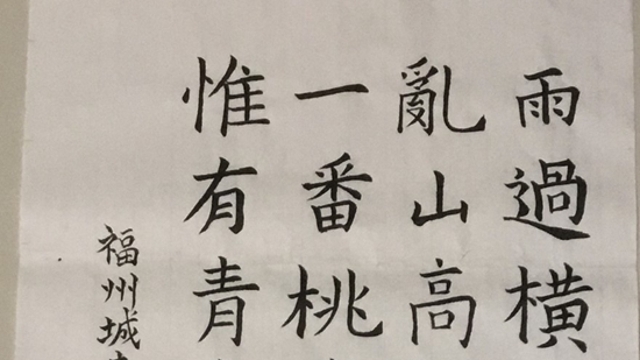 雨過橫
亂山高
一番桃
惟有青
福州城